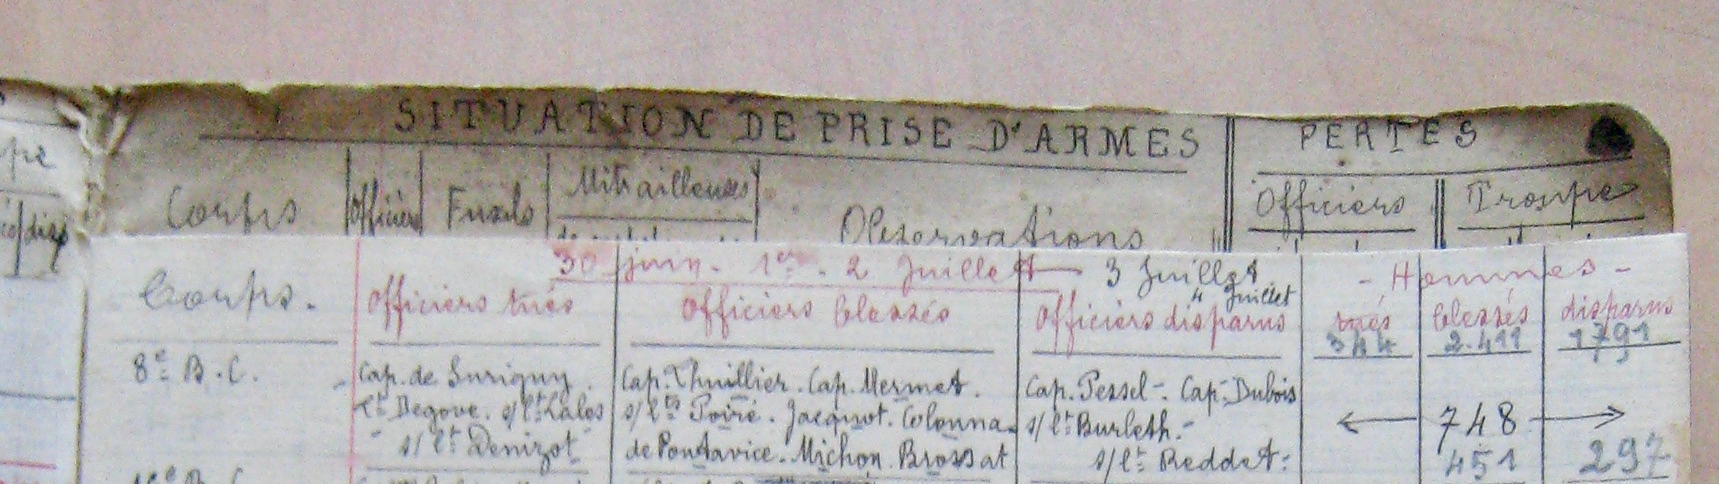 SITUATION DE PRISE D'ARMES PERTES
Corps Officiers Fusils Mitrailleuses Observations Officiers Troupe
30 juin. 1er. 2 Juillet — 3 Juillet - Hommes -
4 Juillet
Corps. Officiers tués Officiers blessés Officiers disparus tués blessés disparus
344 2.411 1791
8e B.C. - Cap. de Surigny. Cap. Thuillier. Cap. Mermet. Cap. Pessel - Cap. Dubois
Lt Degove. s/Lt Lalos s/Lts Poiré. Jacquot. Colonna. s/Lt Burleth. - ← 748 →
- s/Lt Denizot de Pontavice. Michon. Brossat s/Lt Beddet: 451 297